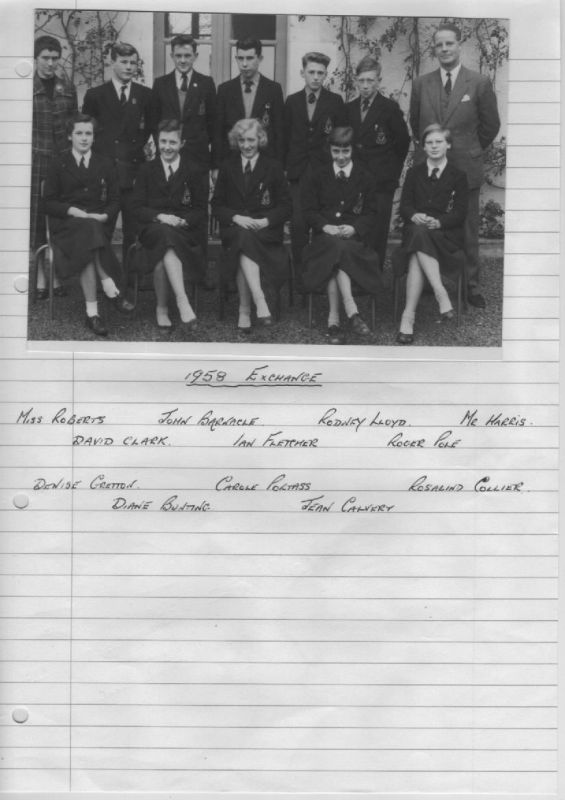 1958 EXCHANGE
MISS ROBERTS JOHN BARNACLE. RODNEY LLOYD. MR HARRIS.
DAVID CLARK. IAN FLETCHER ROGER POLE
DENISE GRETTON. CAROLE PORTASS ROSALIND COLLIER.
DIANE BUNTING JEAN CALVERY